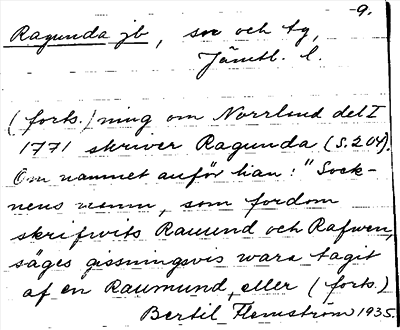 -9.
Ragunda jb, sn och tg,
Jämtl. l.
(forts.) ning om Norrland del I
1771 skriver Ragunda (s. 204).
Om namnet anför han: "Sock-
nens namn, som fordom
skrifwits Raumund och Rafwen,
säges gissningsvis wara tagit
af en Raumund, eller (forts.)
Bertil Flemström 1935.